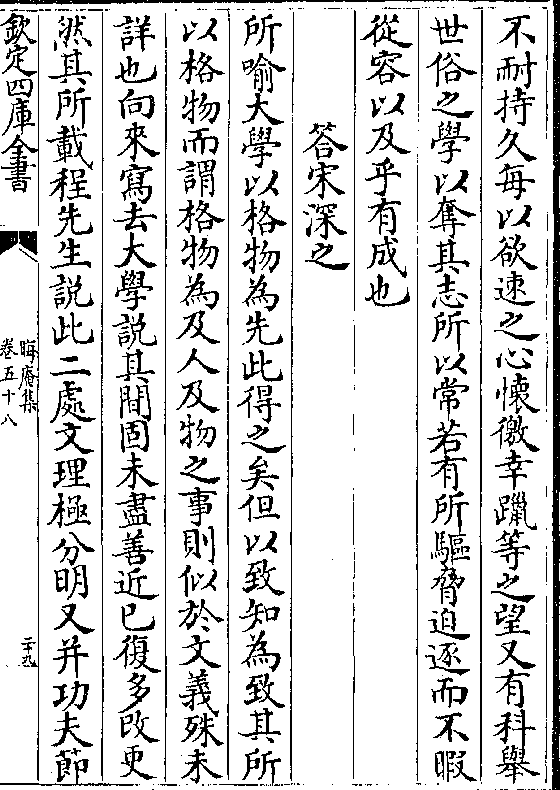 不耐持久每以欲速之心懷徼幸躐等之望又有科舉
世俗之學以奪其志所以常若有所驅脅迫逐而不暇
從容以及乎有成也
答宋深之
所喻大學以格物為先此得之矣但以致知為致其所
以格物而謂格物為及人及物之事則似於文義殊未
詳也向來寫去大學說其間固未盡善近已復多改更
然其所載程先生説此二處文理極分明又并功夫節
欽定四庫全書
晦庵集
卷五十八
二十九